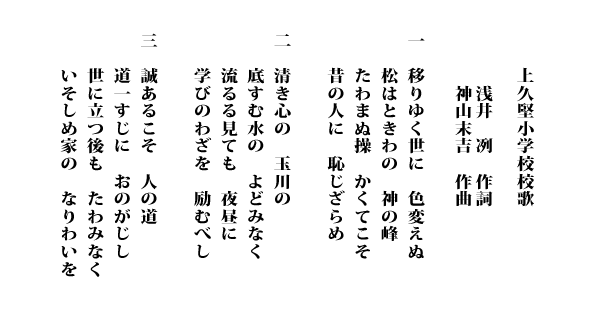 上久堅小学校校歌
浅井 冽 作詞
神山末吉 作曲
一 移りゆく世に 色変えぬ
松はときわの 神の峰
たわまぬ操 かくてこそ
昔の人に 恥じざらめ
二 清き心の 玉川の
底すむ水の よどみなく
流るる見ても 夜昼に
学びのわざを 励むべし
三 誠あるこそ 人の道
道一すじに おのがじし
世に立つ後も たわみなく
いそしめ家の なりわいを